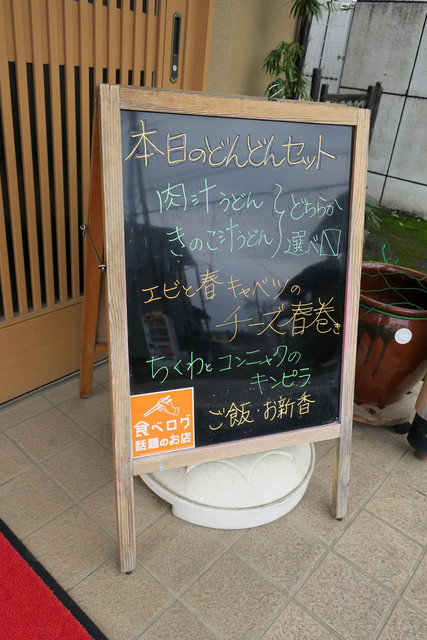 本日のどんどんセット
肉汁うどん
きのこ汁うどん
どちらか
選べ〼
エビと春キャベツの
チーズ春巻き
ちくわとコンニャクの
キンピラ
ご飯・お新香
食べログ
話題のお店